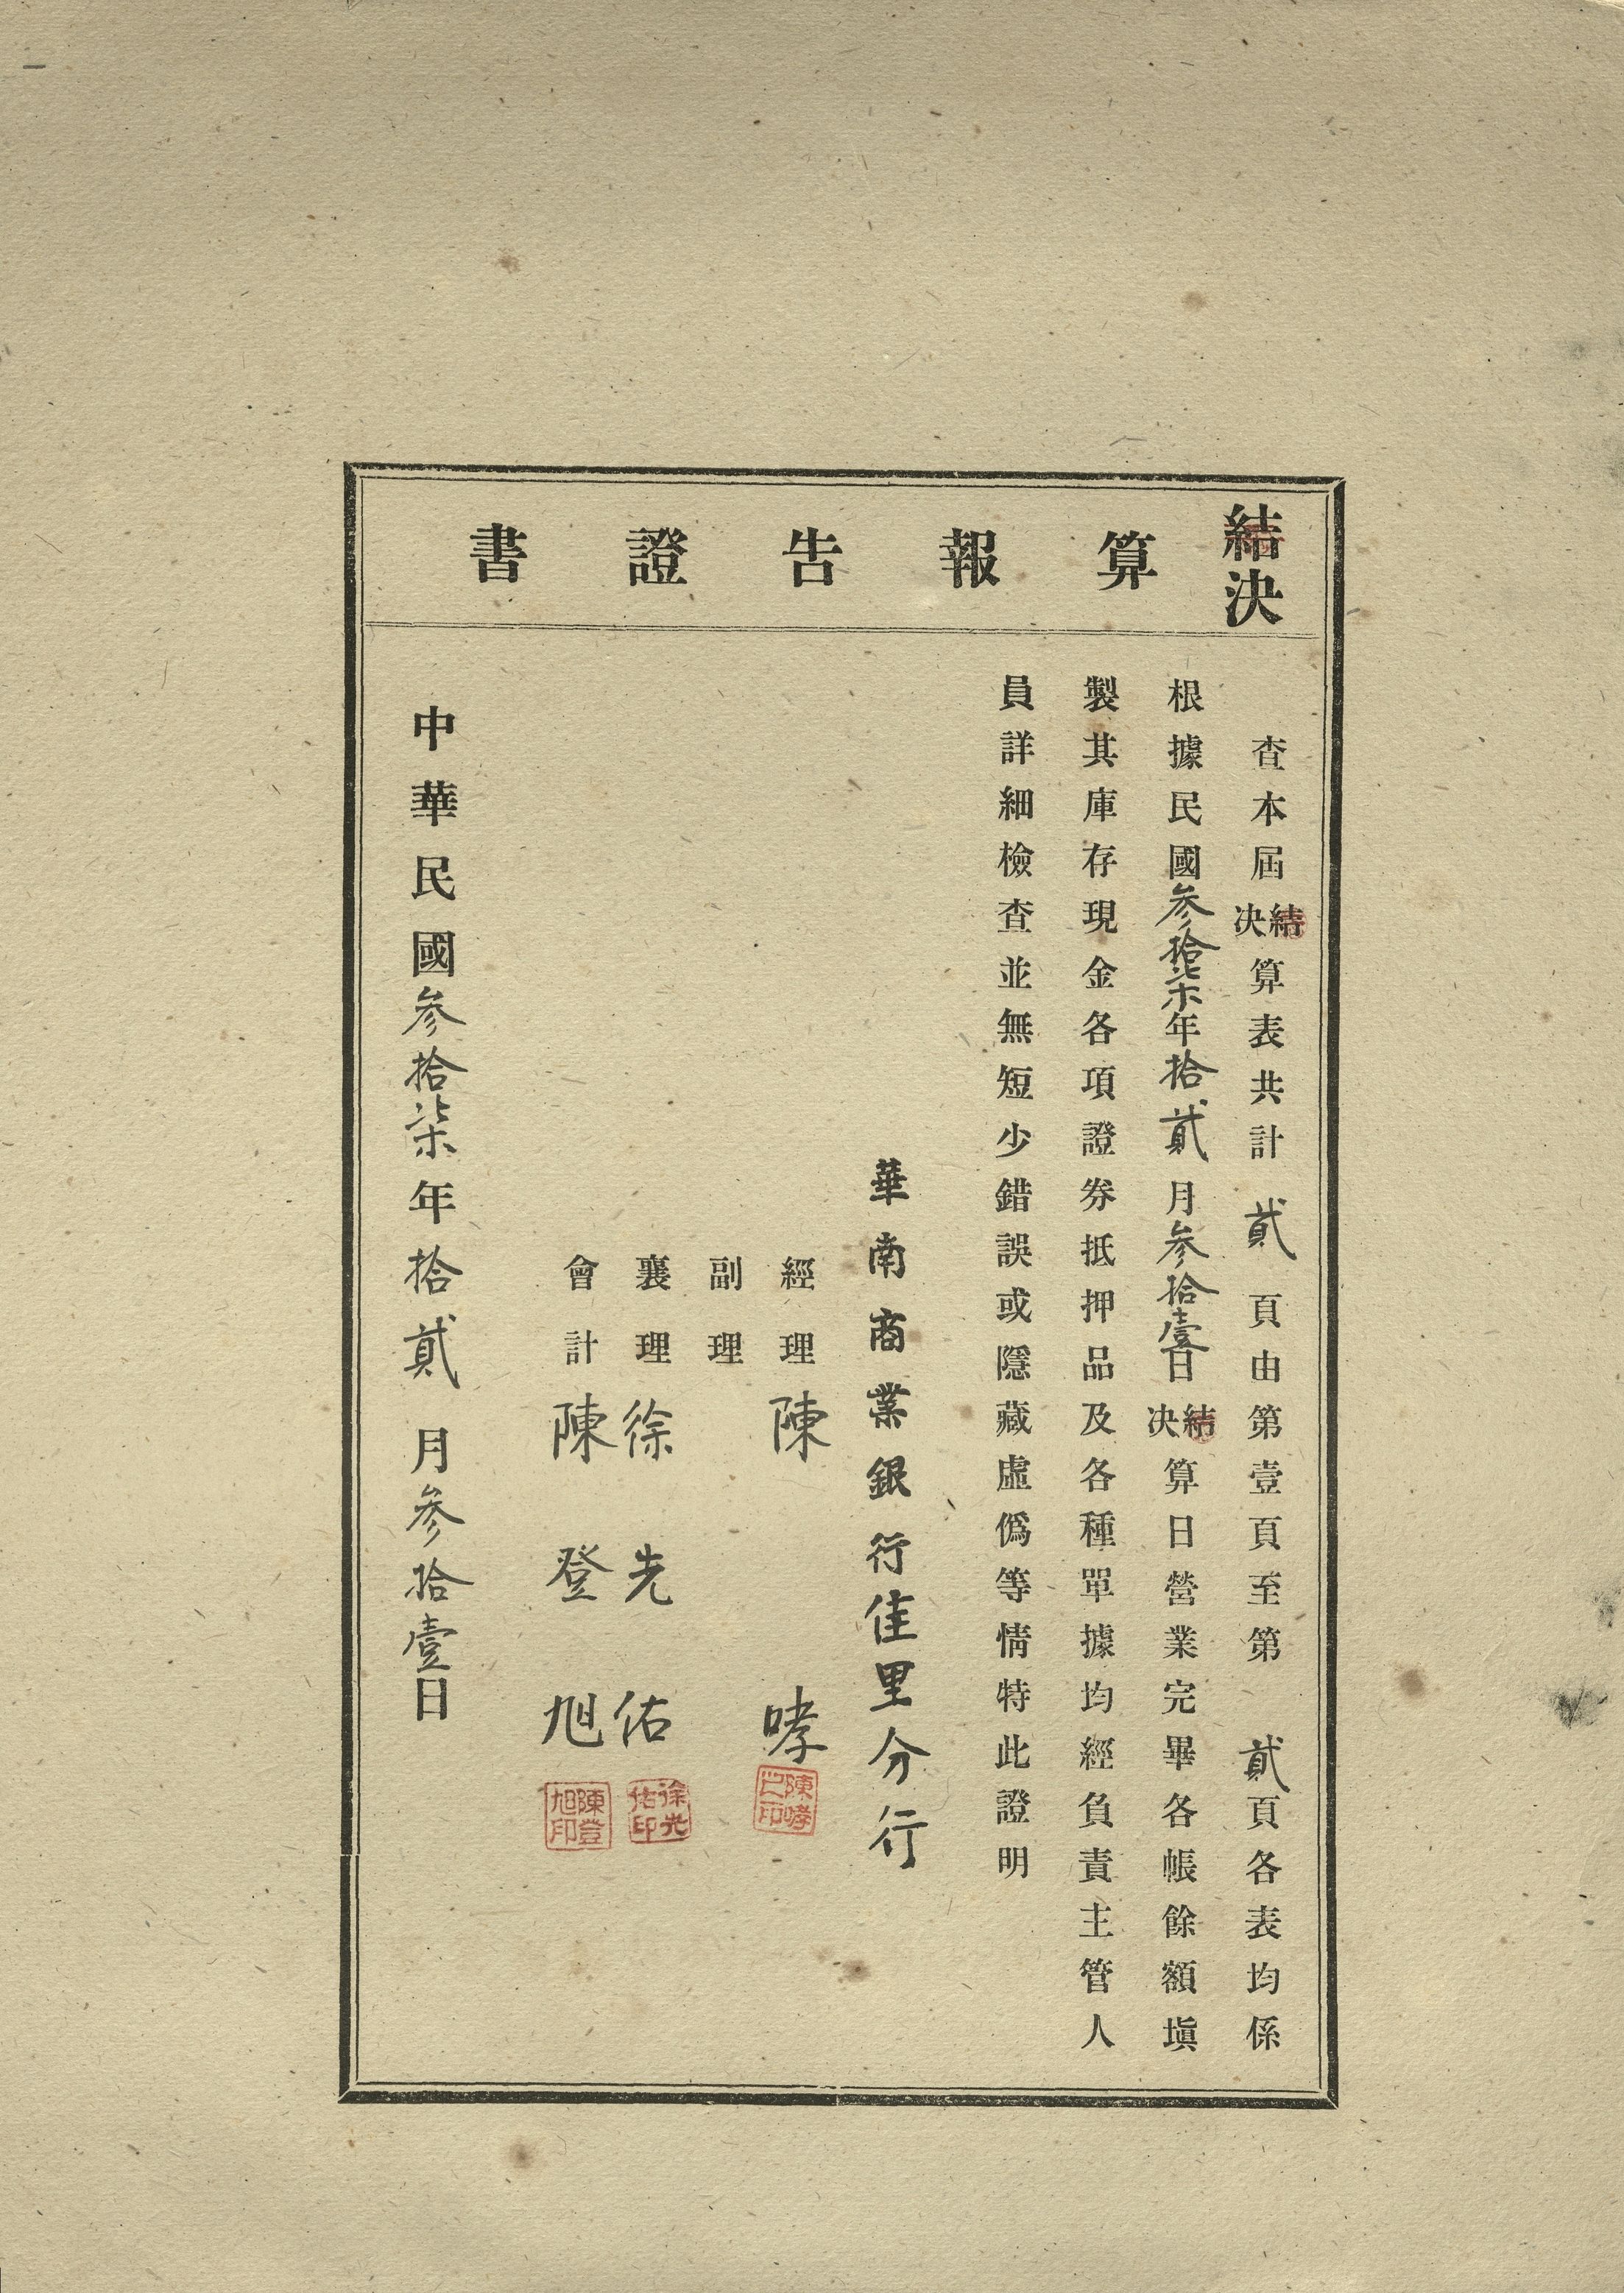 結決算報告證書
查本屆結決算表共計貳頁由第壹頁至第貳頁各表均係
根據民國參拾柒年拾貳月參拾壹日結決算日營業完畢各帳餘額塡
製其庫存現金各項證券抵押品及各種單據均經負責主管人
員詳細檢查並無短少錯誤或隱藏虛僞等情特此證明
華南商業銀行佳里分行
經理陳哮
陳哮之印
副理
襄理徐先佑
徐光佑印
會計陳登旭
陳登旭印
中華民國參拾柒年拾貳月參拾壹日